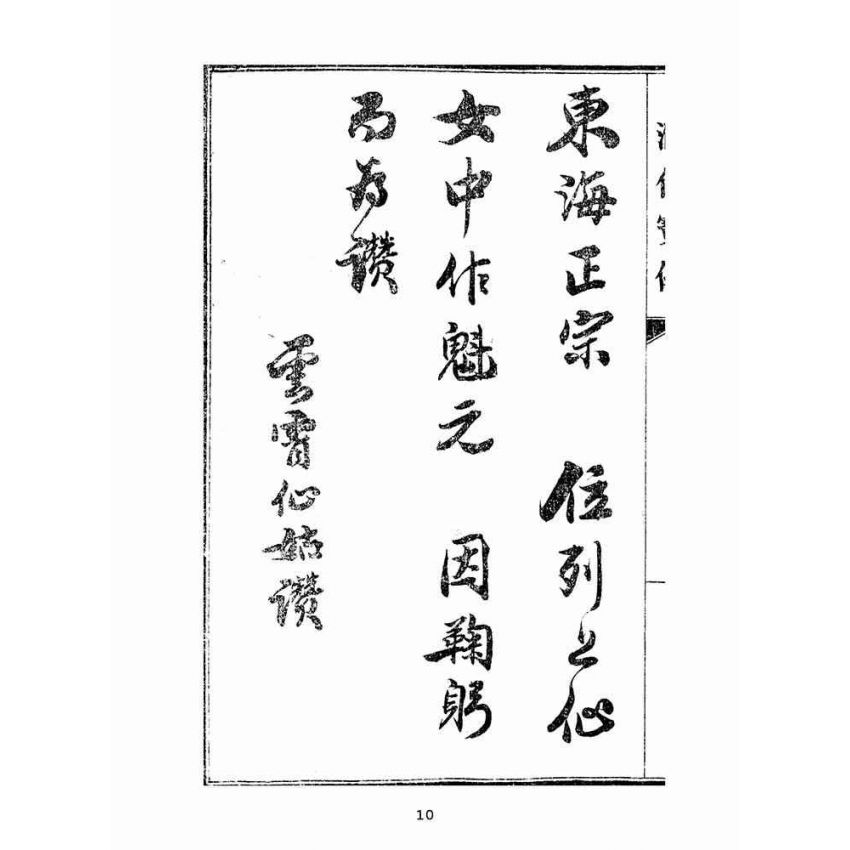 東海正宗 位列上仙
女中作魁元 因鞠躬
而为讚
雲霄仙姑讚
10